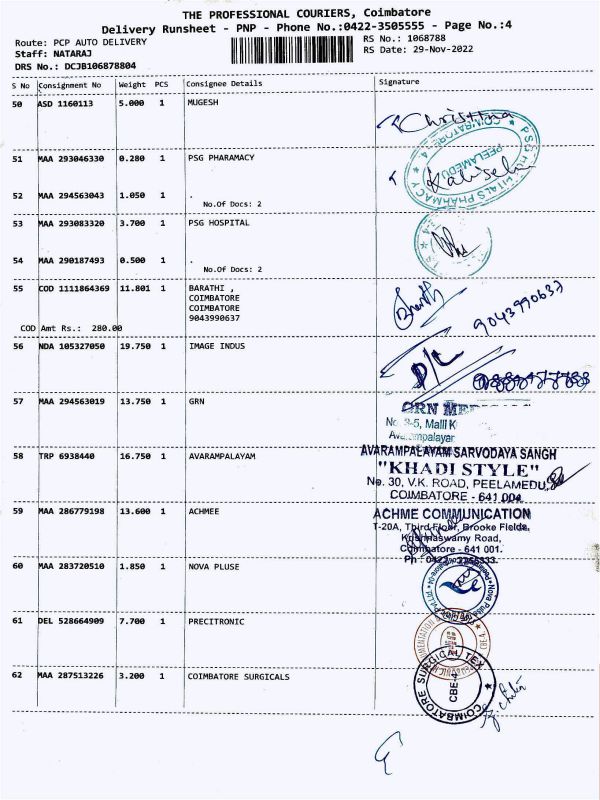 THE PROFESSIONAL COURIERS, Coimbatore
Delivery Runsheet - PNP - Phone No.:0422-3505555 - Page No.:4
Route: PCP AUTO DELIVERY
RS No.: 1068788
Staff: NATARAJ
RS Date: 29-Nov-2022
DRS No.: DCJB106878804
S No Consignment No Weight PCS Consignee Details Signature
50 ASD 1160113 5.000 1 MUGESH
Christina
51 MAA 293046330 0.280 1 PSG PHARAMACY
PEELAMEDU
COIMBATORE-4
52 MAA 294563043 1.050 1 .
No.Of Docs: 2
53 MAA 293083320 3.700 1 PSG HOSPITAL
54 MAA 290187493 0.500 1 .
No.Of Docs: 2
55 COD 1111864369 11.801 1 BARATHI ,
COIMBATORE
COIMBATORE
9043990637
Bharath
9043990637
COD Amt Rs.: 280.00
56 NDA 105327050 19.750 1 IMAGE INDUS
D/C
57 MAA 294563019 13.750 1 GRN
GRN
58 TRP 6938440 16.750 1 AVARAMPALAYAM
AVARAMPALAYAM SARVODAYA SANGH
"KHADI STYLE"
No. 30, V.K. ROAD, PEELAMEDU,
COIMBATORE - 641 004
59 MAA 286779198 13.600 1 ACHMEE
ACHME COMMUNICATION
T-20A, Third Floor, Brooke Fields,
Krishnaswamy Road,
Coimbatore - 641 001.
60 MAA 283720510 1.850 1 NOVA PLUSE
61 DEL 528664909 7.700 1 PRECITRONIC
CBE-4
62 MAA 287513226 3.200 1 COIMBATORE SURGICALS
COIMBATORE SURGICAL TEX
CBE-4